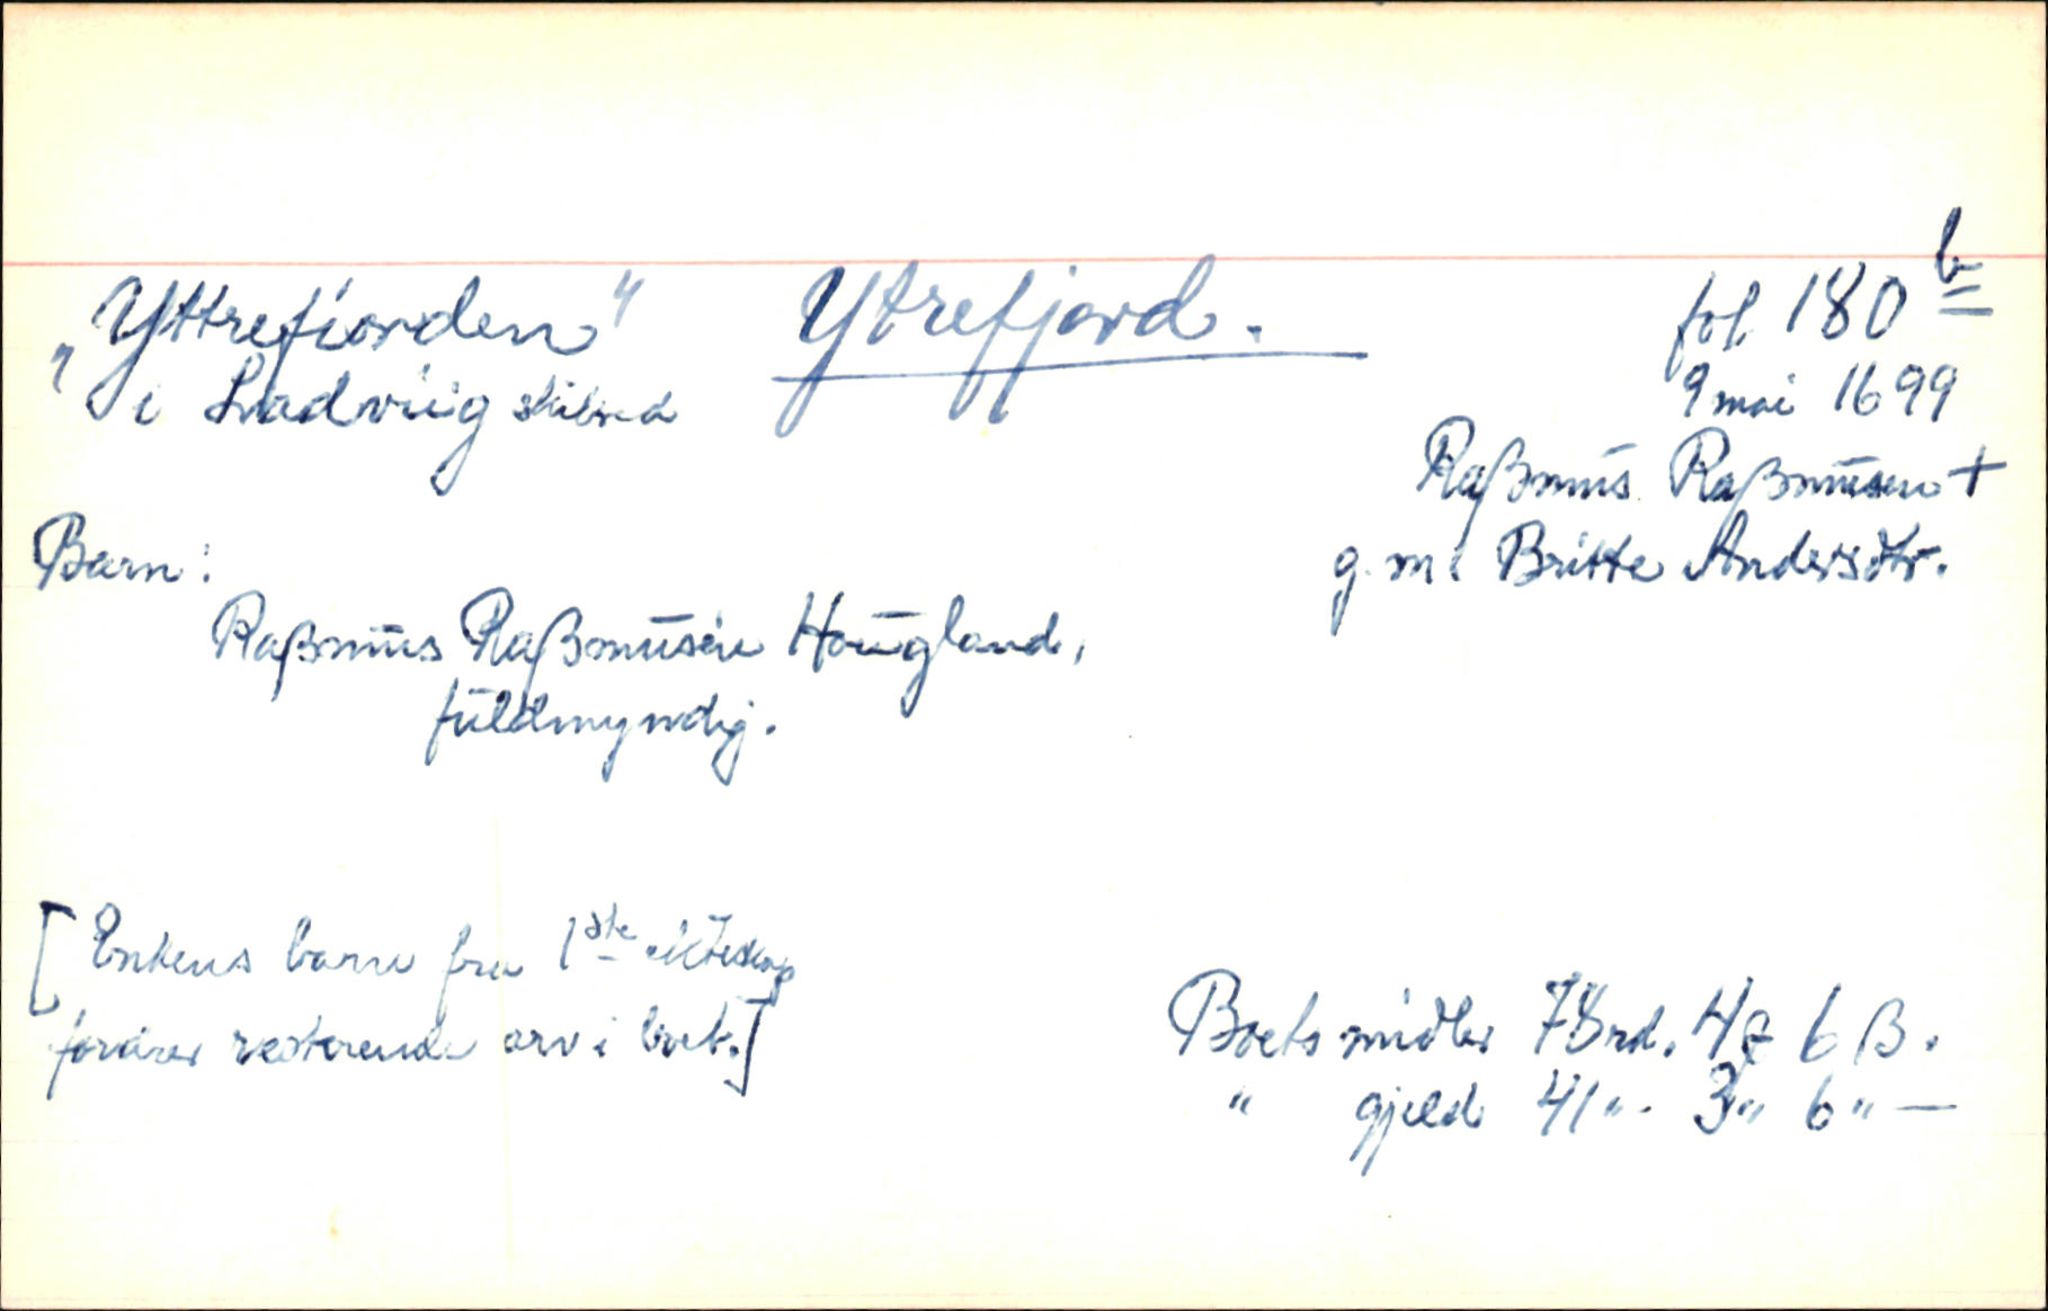 „Yttrefiorden" Ytrefjord. fol 180 b
i Ladviig skibred 9 mai 1699
Raßmus Raßmusen +
g.m. Britte Andersdtr.
Barn:
Raßmus Raßmusen Hougland,
fuldmyndig.
[Enkens barn fra 1ste ekteskap
fordrer resterende arv i boet.]
Boets midler 78 rd. 4 ꝵ 6 ß.
" gjeld 41 " . 3 " 6 " —